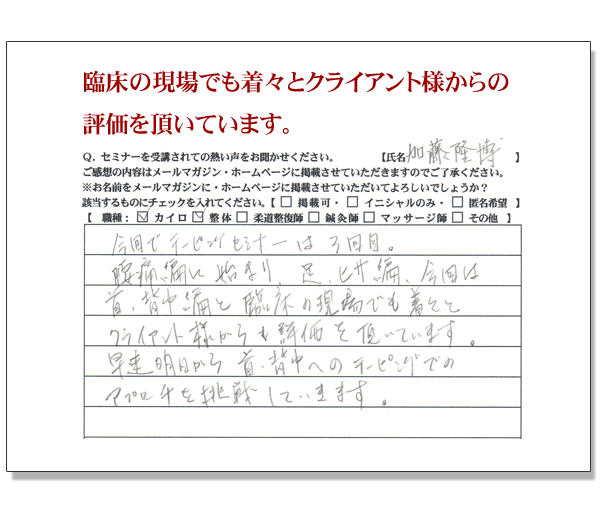 臨床の現場でも着々とクライアント様からの
評価を頂いています。
Q．セミナーを受講されての熱い声をお聞かせください。 【氏名 加藤隆博 】
ご感想の内容はメールマガジン・ホームページに掲載させていただきますのでご了承ください。
※お名前をメールマガジンに・ホームページに掲載させていただいてよろしいでしょうか？
該当するものにチェックを入れてください。【 □ 掲載可・ □ イニシャルのみ・ □ 匿名希望 】
【 職種： ☑ カイロ ☑ 整体 □ 柔道整復師 □ 鍼灸師 □ マッサージ師 □ その他 】
今回でテーピングセミナーは3回目。
腰痛編に始まり、足、ヒザ編、今回は
首、背中編と臨床の現場でも着々と
クライアント様からも評価を頂いています。
早速明日から首、背中へのテーピングでの
アプローチを挑戦していきます。